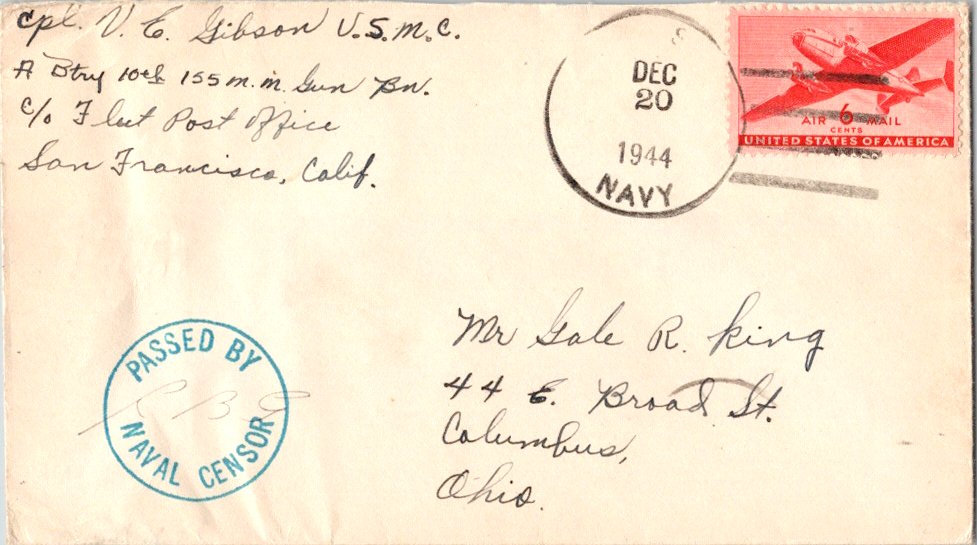 Cpl. V. E. Gibson U.S.M.C.
A Btry 10th 155 m.m. Gun Bn.
c/o Fleet Post Office
San Francisco, Calif.
DEC
20
1944
NAVY
AIR 6 MAIL
CENTS
UNITED STATES OF AMERICA
Mr Gale R. King
44 E. Broad St.
Columbus,
Ohio.
PASSED BY
NAVAL CENSOR